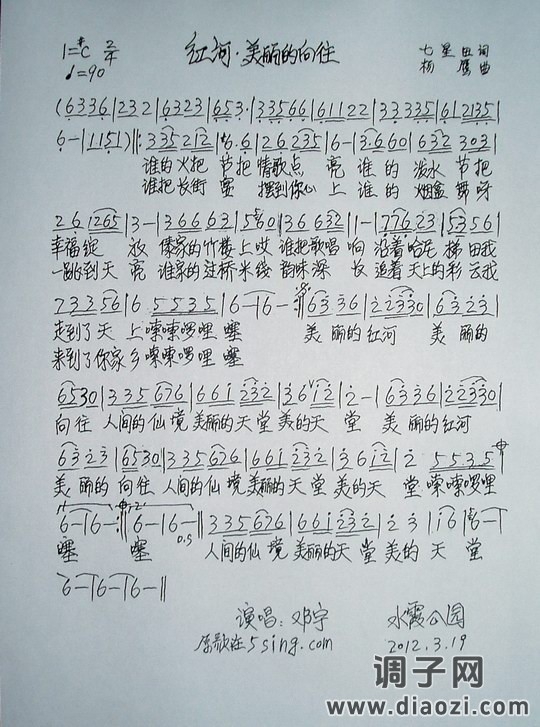 1=#C 2/4 红河·美丽的向往 七星田 词
♩=90 杨鹰 曲
(6336|232|6323|653·|33566|61122|33335|612135|
6-|1151)‖:335212|6·6|26235|6-|3·660|632 303|
谁的火把 节把 情歌点 亮 谁的 泼水 节把
谁把长街 宴 摆到你心 上 谁的 烟盒 舞呀
26 1265|3-|36663|560|36 632|1-|77623|5356|
幸福绽 放 傣家的竹楼上哎 谁把歌唱 响 沿着哈尼 梯田我
一跳到天 亮 谁家的过桥米线 韵味深 长 追着天上的彩 云我
7335 6|6 5535|6-|6-:‖6336|22330|6323|
走到了天 上嗦嗦啰哩 噻 美 丽的红河 美 丽的
来到了你家 乡嗦嗦啰哩 噻
6530|335676|661232|36 12|2-|6336|22330|
向往 人间的仙 境美丽的天 堂美的天 堂 美 丽的红河
6323|6530|335676|661232|36 12|2 5535|
美 丽的 向往 人间的仙 境美丽的天 堂美的天 堂嗦嗦啰哩
6-|6-:‖6-|6-‖335676|661232|23|16|6-|
D.S
噻 噻 人间的仙 境美丽的天 堂美的 天 堂
6-|6-|6-‖
演唱：邓宇 水霞公园
原歌在5sing.com 2012.3.19
调子网
www.diaozi.com